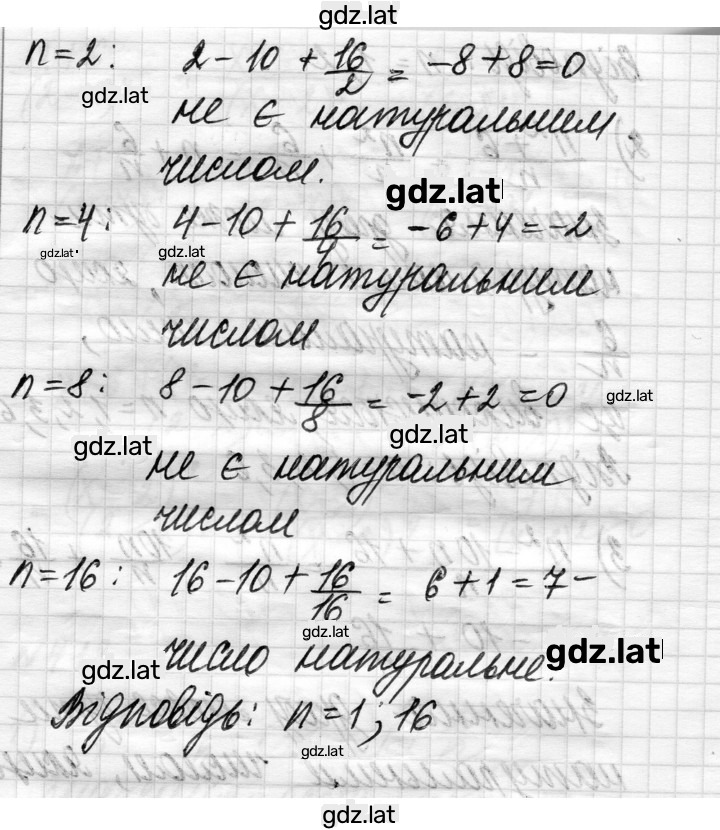 gdz.lat
n=2: 2-10+16/2=-8+8=0
gdz.lat
не є натуральним
числом.
gdz.lat
n=4: 4-10+16/4=-6+4=-2
gdz.lat gdz.lat
не є натуральним
числом
n=8: 8-10+16/8=-2+2=0
gdz.lat
gdz.lat gdz.lat
не є натуральним
числом
n=16: 16-10+16/16=6+1=7-
gdz.lat
число натуральне.
gdz.lat gdz.lat
Відповідь: n=1;16
gdz.lat
gdz.lat